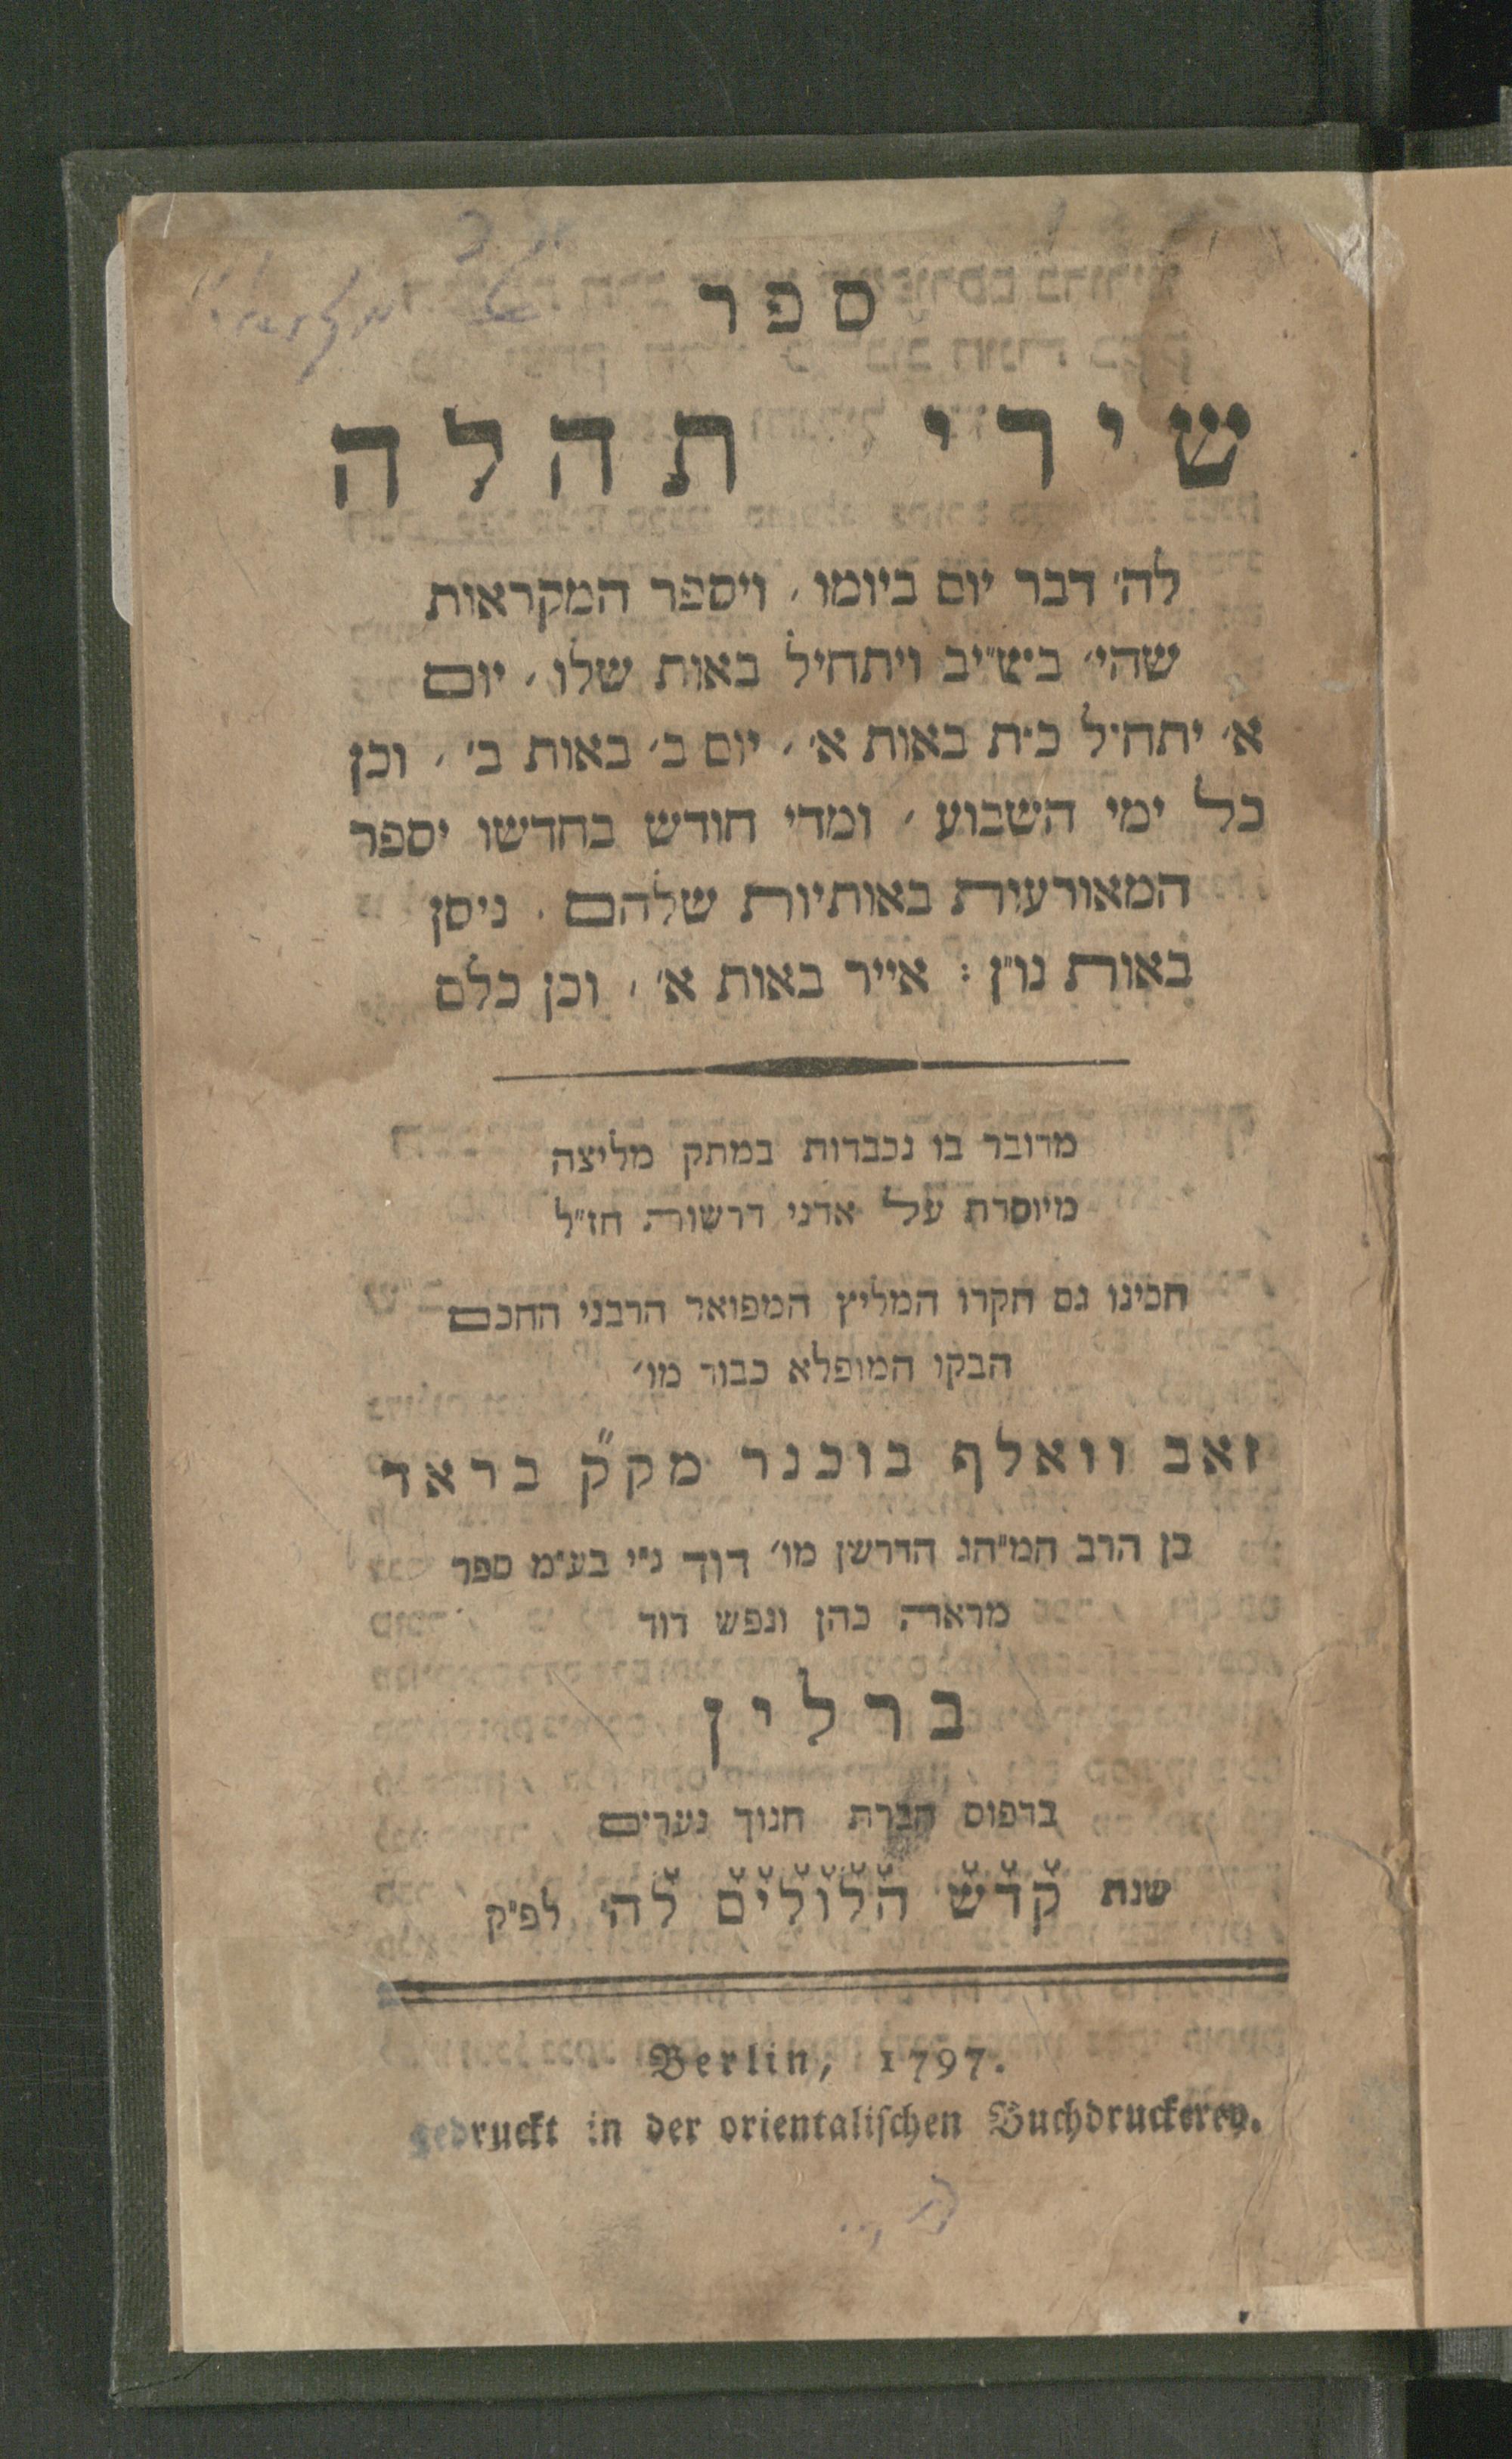 ספר
שירי תהלה
לה׳ דבר יום ביומו, ויספר המקראות
שהי׳ בש״יב ויתחיל באות שלו, יום
א׳ יתחיל כ״ת באות א׳, יום ב׳ באות ב׳, וכן
כל ימי השבוע, ומדי חודש בחדשו יספר
המאורעות באותיות שלהם. ניסן
באות נו״ן: אייר באות א׳, וכן כלם
מדובר בו נכבדות במתק מליצה
מיוסדת על אדני דרשות חז״ל
הכינו גם חקרו המליץ המפואר הרבני החכם
הבקי המופלא כבוד מו׳
זאב וואלף בוכנר מק״ק בראד
בן הרב המ״הג הדרשן מו׳ דוד נ״י בע״מ ספר
מראה כהן ונפש דוד
ברלין
בדפוס חברת חנוך נערים
שנת קדש הלולים לה׳ לפ״ק
Berlin, 1797.
gedruckt in der orientalischen Buchdruckerey.